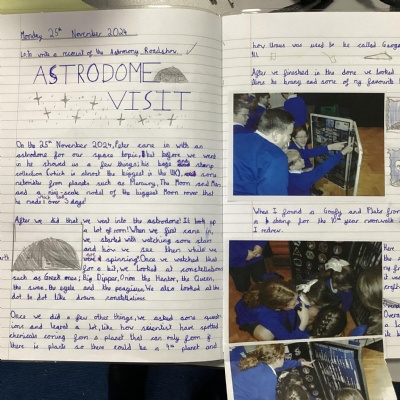 Monday 25th November 2024
LO: To write a recount of the Astronomy Roadshow.
ASTRODOME
VISIT
On the 25th November 2024, Peter came in with an
astrodome for our space topic, but before we went
in he showed us a few things; his huge stamp
collection (which is almost the biggest in the UK), some
meteorites from planets such as Mercury, The Moon and Mars
and a mini-scale model of the biggest Moon rover that
he made which took over 3 days!
After we did that, we went into the astrodome! It took up
a lot of room! When we first came in,
we started with watching some stars
and how we see them while we
were spinning! Once we watched that
for a bit, we looked at constellations
such as Greek ones; Big Dipper, Orion the Hunter, the Queen,
the swan, the eagle and the pegasus. We also looked at the
dot to dot like drawn constellations.
Once we did a few other things, we asked some quest-
ions and learnt a lot, like how scientist have spotted
chemicals coming from a planet that can only form if
there is plants so there could be a planet and
how Uranus was used to be called George
After we finished in the dome we looked
time he brang and some of my favourite
When I found a Goofy and Pluto from
a stamp for the 10th year moonwalk
I redrew.